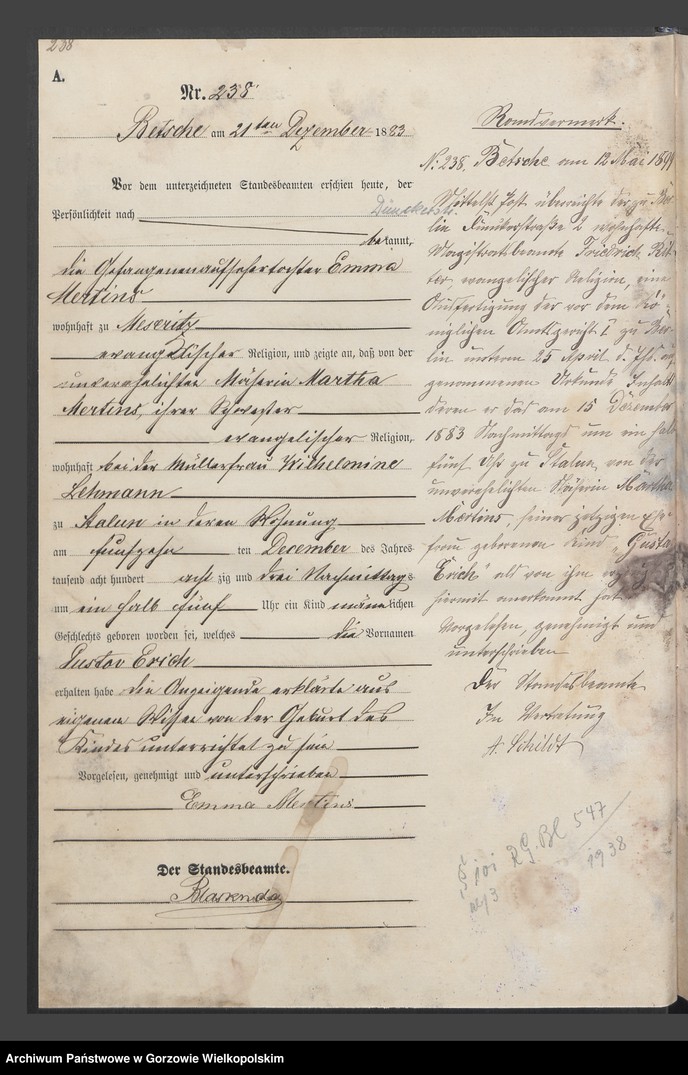 238
A.
Nr. 238
Betsche am 21ten Dezember 1883
Vor dem unterzeichneten Standesbeamten erschien heute, der
Persönlichkeit nach
bekannt,
die Gefangenenaufsehertochter Emma
Mertins
wohnhaft zu Meseritz
evangelischer Religion, und zeigte an, daß von der
unverehelichten Näherin Martha
Mertins, ihrer Schwester
evangelischer Religion,
wohnhaft bei der Müllerfrau Wilhelmine
Lehmann
zu Stalun in deren Wohnung
am fünfzehn ten December des Jahres
tausend acht hundert acht zig und drei Nachmittags
um ein halb fünf Uhr ein Kind männlichen
Geschlechts geboren worden sei, welches die Vornamen
Gustav Erich
erhalten habe die Anzeigende erklärte aus
eigenem Wissen von der Geburt des
Kindes unterrichtet zu sein
Vorgelesen, genehmigt und unterschrieben
Emma Mertins
Der Standesbeamte.
Randvermerk.
N: 238. Betsche am 12 Mai 1899
Mittelst Post überreichte der zu Ber-
lin 2 wohnhafte
Magistratsbeamte Friedrich
evangelischer Religion, eine
Ausfertigung der vor dem Kö-
niglichen Amtsgericht I zu Ber-
lin unterm 25 April d. Js. auf-
genommenen Urkunde Inhalts
deren er das am 15 Dezember
1883 Nachmittags um ein halb
fünf Uhr zu Stalun von der
unverehelichten Näherin Martha
Mertins, seiner jetzigen Ehe-
frau geborenen Kind „Gustav
Erich" als von ihm
hiermit anerkannt hat.
Vorgelesen, genehmigt und
unterschrieben
Der Standesbeamte
In Vertretung
A. Schildt
R.G.Bl 547
1938
Archiwum Państwowe w Gorzowie Wielkopolskim